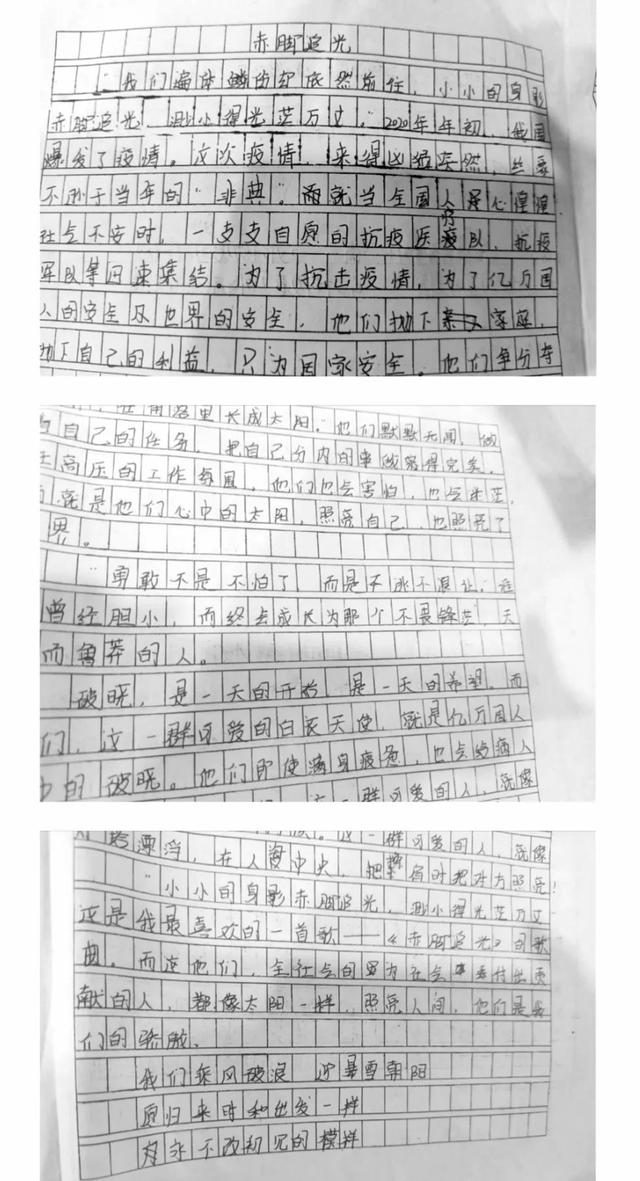 赤脚追光
“我们遍体鳞伤却依然前往,小小的身影
赤脚追光 渺小得光茫万丈。”2020年年初,我国
爆发了疫情。这次疫情,来得凶猛突然,丝毫
不逊于当年的“非典”。而就当全国人民心惶惶
社会不安时,一支支自愿的抗疫医疗队,抗疫
军队等迅速集结。为了抗击疫情,为了亿万国
人的安全及世界的安全,他们抛下家庭,
抛下自己的利益,只为国家安全。他们争分夺
角落里长成太阳。”他们默默无闻,做
自己的任务,把自己分内的事做完得完美,
高压的工作氛围,他们也会害怕,也会迷茫,
就是他们心中的太阳,照亮自己,也照亮了
界。
“勇敢不是不怕了,而是不逃不退让,
曾经胆小,而终会成长为那个不畏锋芒,天
而鲁莽的人。
破晓,是一天的开始,是一天的希望。而
们,这一群可爱的白衣天使,就是亿万国人
中的破晓。他们即使满身疲惫,也会给病人
一群可爱的人,就像
一群可爱的人,就像
漂泊,在人海中央,把对方照亮!
“小小的身影赤脚追光,渺小得光茫万丈
这是我最喜欢的一首歌——《赤脚追光》的歌
曲。而这他们,全社会的因为社会付出贡
献的人,都像太阳一样,照亮人间,他们是我
们的骄傲。
我们乘风破浪 迎暴雪朝阳
愿归来时和出发一样
不改初见的模样